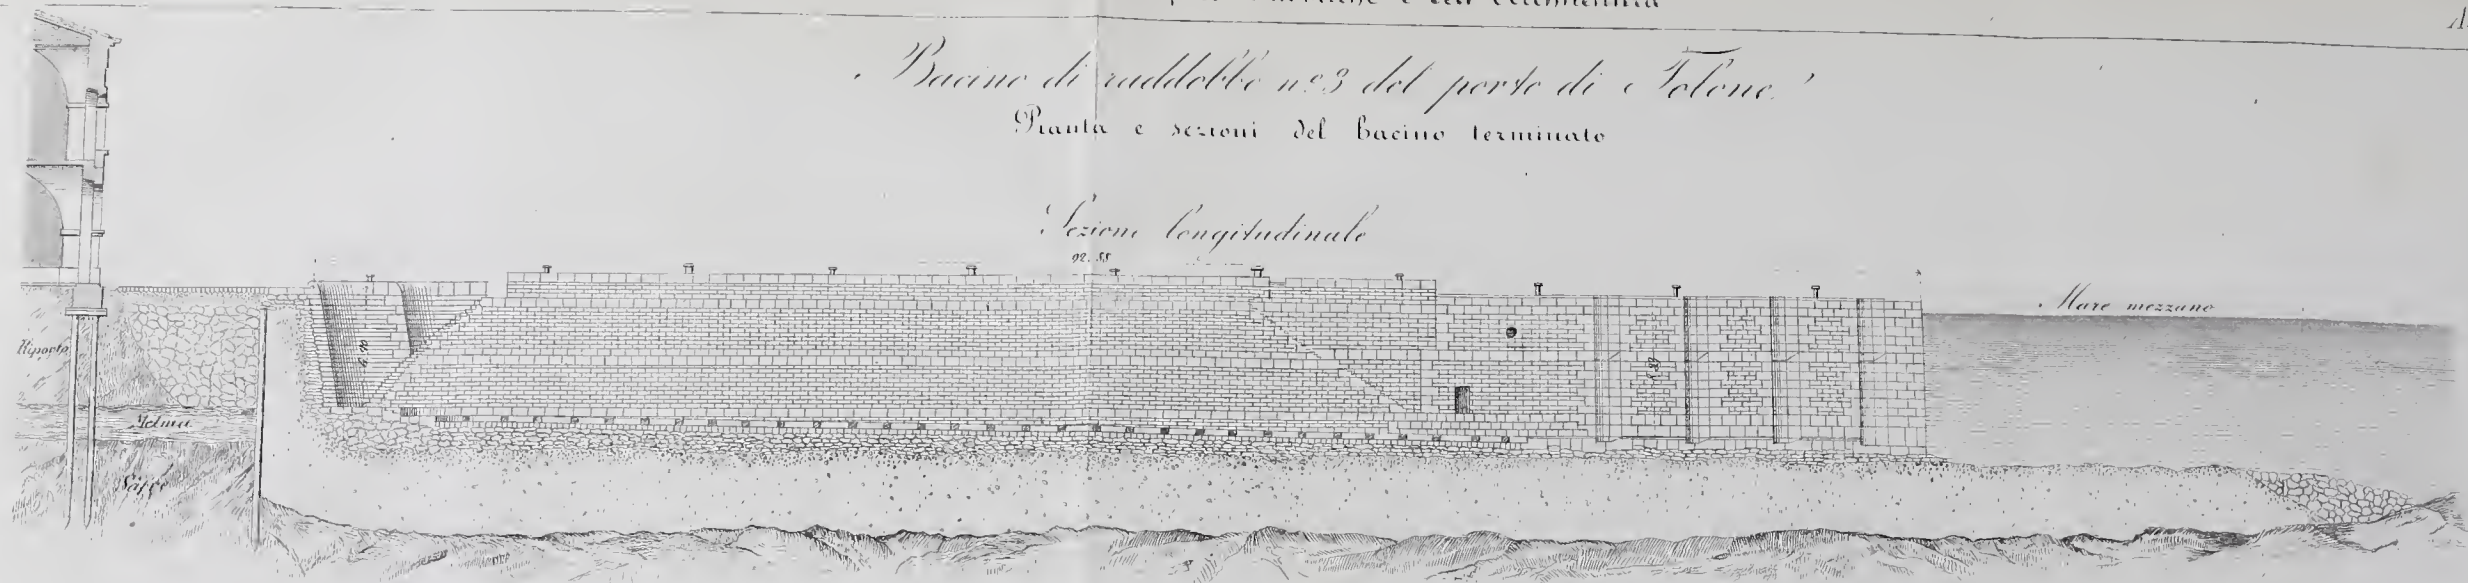 Bacino di raddobbo nº 3 del porto di Tolone.
Pianta e sezioni del bacino terminato
Sezione longitudinale
92.55
Mare mezzano
Riporto
Melma